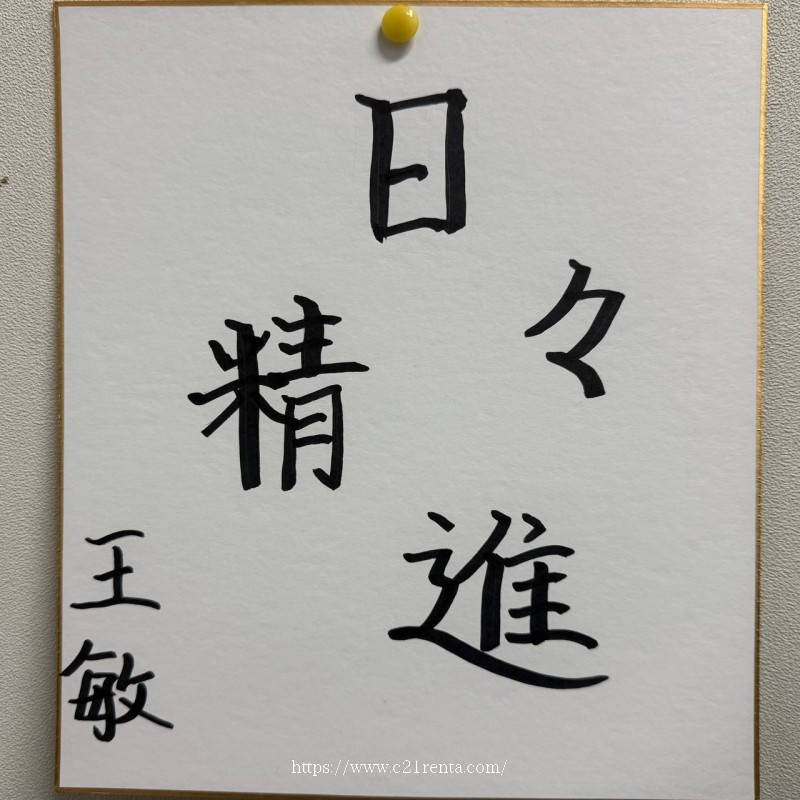 日々精進
王敏
https://www.c21renta.com/